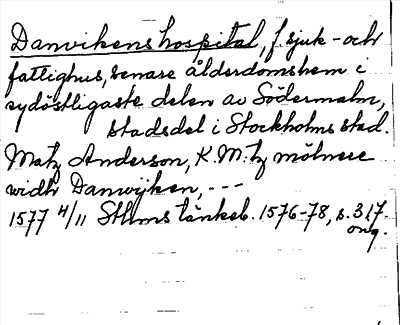 Danvikens hospital, f. sjuk- och
fattighus, senare ålderdomshem i
sydöstligaste delen av Södermalm,
stadsdel i Stockholms stad.
Matz Anderson, K. M:tz mölnere
widh Danwijken, ---
1577 4/11 Sthms tänkeb. 1576-78, s. 317.
orig.